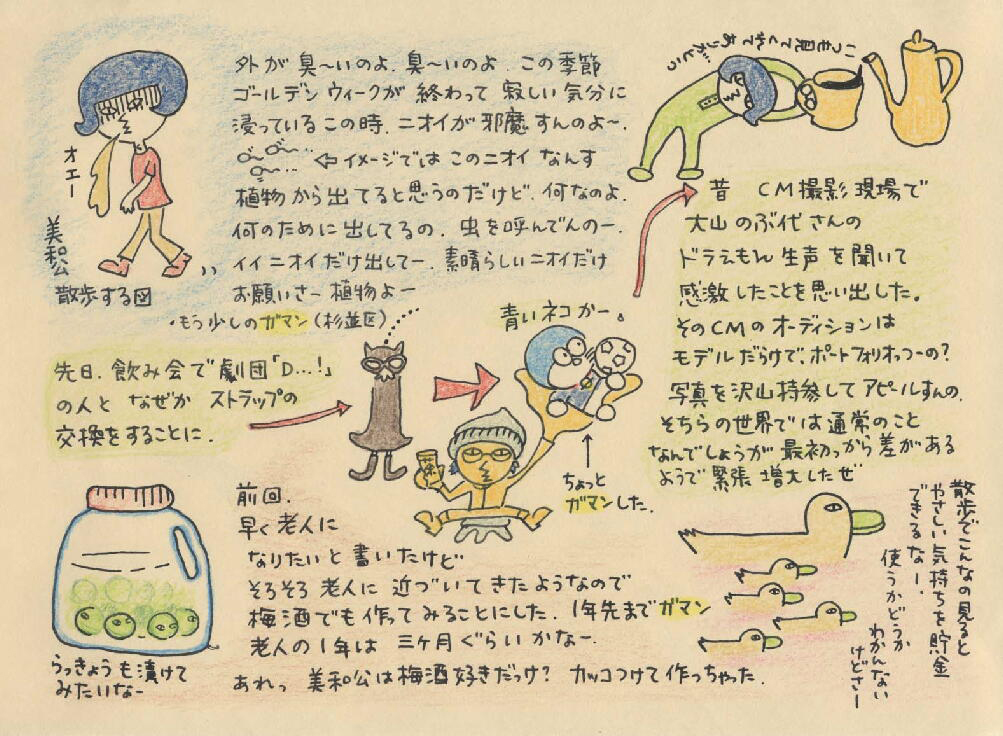 外が臭〜いのよ、臭〜いのよ、この季節
ゴールデンウィークが終わって寂しい気分に
浸っているこの時、ニオイが邪魔すんのよ〜、
⇦イメージではこのニオイなんす
植物から出てると思うのだけど、何なのよ、
何のために出してるの、虫を呼んでんのー、
イイニオイだけ出してー、素晴らしいニオイだけ
お願いさー植物よー
・もう少しのガマン(杉並区)
オエー
美和公
散歩する図
いつも見てくれて
ありがとう
昔 CM撮影現場で
大山のぶ代さんの
ドラえもん生声を聞いて
感激したことを思い出した。
そのCMのオーディションは
モデルだらけで、ポートフォリオっつーの?
写真を沢山持参してアピールすんの、
そちらの世界では通常のこと
なんでしょうが最初っから差がある
ようで緊張増大したぜ
先日、飲み会で劇団「D…!」
の人となぜかストラップの
交換をすることに、
青いネコかー。
茶
ちょっと
ガマンした、
前回、
早く老人に
なりたいと書いたけど
そろそろ老人に近づいてきたようなので
梅酒でも作ってみることにした、1年先までガマン
老人の1年は三ヶ月ぐらいかなー、
あれっ 美和公は梅酒好きだっけ? カッコつけて作っちゃった、
らっきょうも漬けて
みたいなー
散歩でこんなの見ると
やさしい気持ちを貯金
できるなー、
使うかどうか
わかんない
けどさー